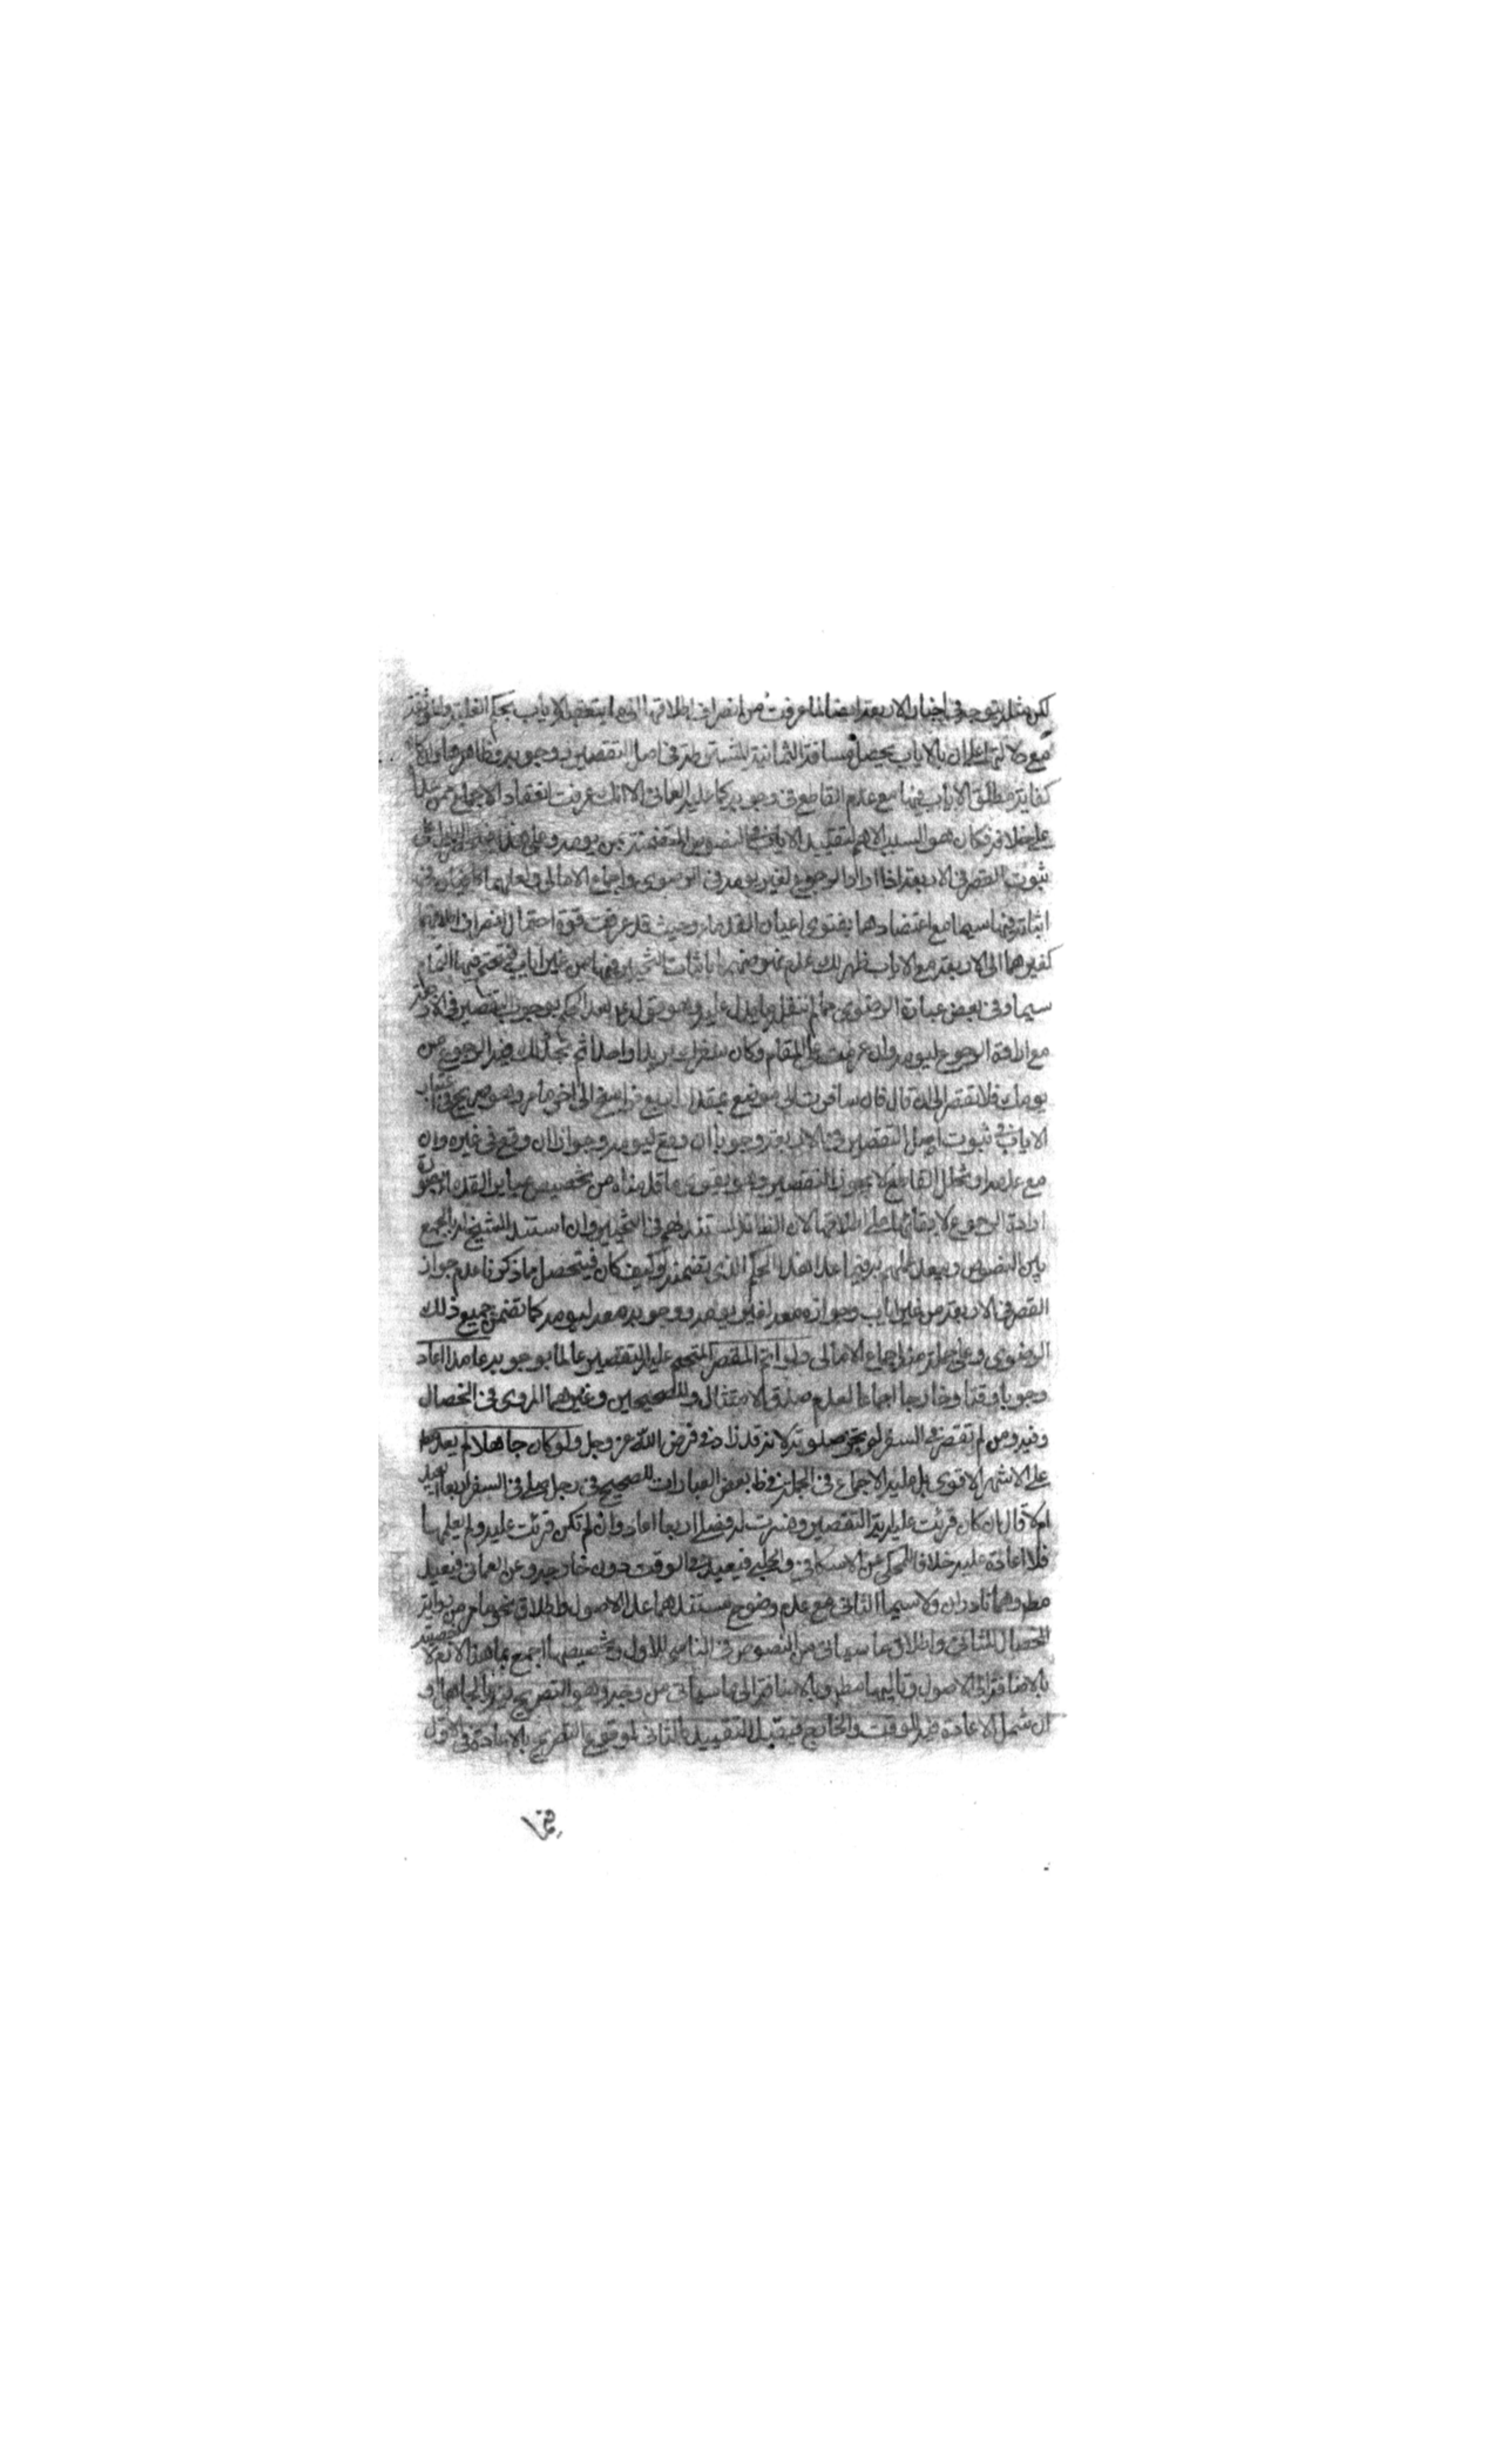 لكن مثله يتوجه في اخبار الاربعة ايضا لما عرفت من انصراف اطلاقها الى ما يتعقبه الاياب بحكم الغلبة
مع دلالتها على ان بالاياب يحصل مسافة الثمانية المشترطة في اصل التقصير ووجوبه وظاهرها
كفاية مطلق الاياب فيها مع عدم القاطع في وجوبه كما عليه العماني الا انك عرفت انعقاد الاجماع ممن عداه
على خلافه فكان هو السبب الاهم لتقييد الاياب في النصوص المتضمنة بمن يومه وعلى هذا
ثبوت القصر في الاربعة اذا اراد الرجوع لغير يومه في الرضوي واجماع الامالي ولعلهما كافيان في
اثباته فيها سيما مع اعتضادهما بفتوى اعيان القدماء وحيث قد عرفت قوة احتمال انصراف اطلاقهما
كغيرهما الى الاربعة مع الاياب ظهر لك عدم نهوضهما باثبات التخيير فيها من غير اياب فيتحتم فيها التمام
سيما وفي بعض عبارة الرضوي مما لم ننقله ما يدل عليه وهو قوله ع بعد الحكم بوجوب التقصير في الاربعة
مع ارادة الرجوع ليومه وان عزمت على المقام وكان سفرك بريدا واحدا ثم تجدد لك فيه الرجوع من
يومك فلا تقصر الى ان قال فان سافرت الى موضع مقدار اربع فراسخ الى اخر ما مر وهو صريح في اعتبار
الاياب في ثبوت اصل التقصير في الاربعة وجوبا ان وقع ليومه وجوازا ان وقع في غيره وان
مع عدمه او تخلل القاطع لا يجوز التقصير وهو يقوي ما قدمناه من تخصيص عباير القدماء بصورة
ارادة الرجوع لا بقائها على اطلاقها لان الظ انه مستندهم في التخيير وان استند الشيخ له بالجمع
بين النصوص ويبعد عملهم به فيما عدا هذا الحكم الذي تضمنه وكيف كان فيتحصل مما ذكرنا عدم جواز
القصر في الاربعة من غير اياب وجوازه معه لغير يومه ووجوبه معه ليومه كما تضمن جميع ذلك
الرضوي وعلى جملة منه اجماع الامالي ولو اتم المقصر المتحتم عليه التقصير عالما بوجوبه عامدا اعاد
وجوبا وقتا وخارجا اجماعا لعدم صدق الامتثال وللصحيحين وغيرهما المروي في الخصال
وفيه ومن لم تقصر في السفر لم يجز صلوته لانه قد زاد في فرض الله عز وجل ولو كان جاهلا لم يعد مط
على الاشهر الاقوى بل عليه الاجماع في الجملة في ظ بعض العبارات للصحيح في رجل صلى في السفر اربعا ايعيد
ام لا قال ان كان قرئت عليه اية التقصير وفسرت له فصلى اربعا اعاد وان لم تكن قرئت عليه ولم يعلمها
فلا اعادة عليه خلافا للمحكي عن الاسكافي والحلبي فيعيد في الوقت دون خارجه وعن العماني فيعيد
مط وهما نادران ولا سيما الثاني مع عدم وضوح مستندهما عدا الاصول واطلاق نحو ما مر من رواية
الخصال للثاني واطلاق ما سياتي من النصوص في الناسي للاول وتخصيصها اجمع بما هنا لازم
بالاضافة الى الاصول وتاليها مط وبالاضافة الى ما سياتي من وجه وهو التصريح فيه بالجاهل و
ان شمل الاعادة فيه الوقت والخارج فيقبل التقييد بالثاني لوقوع التصريح بالاعادة في الاول